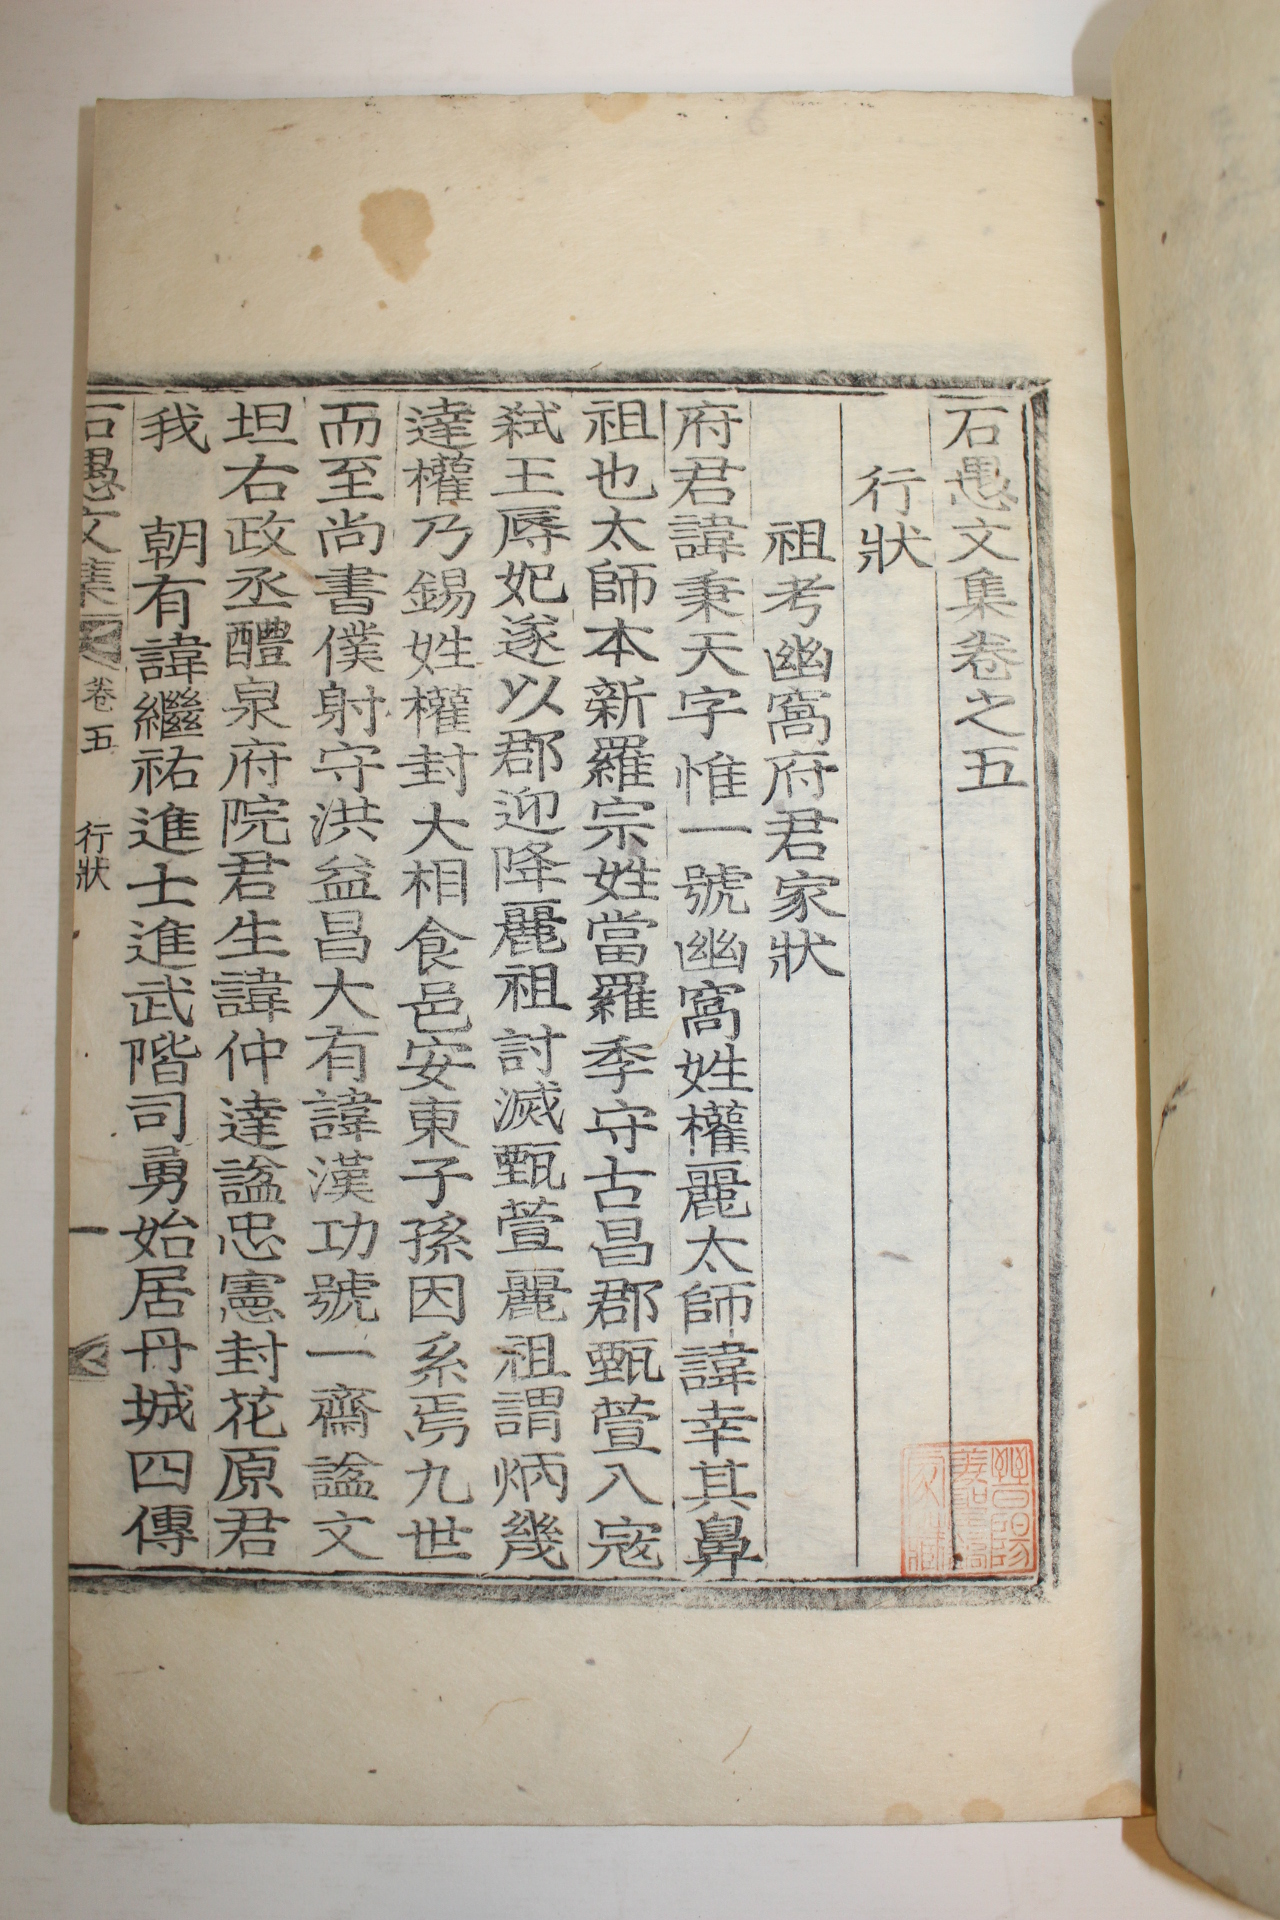 石愚文集卷之五
行狀
祖考幽窩府君家狀
府君諱秉天字惟一號幽窩姓權麗太師諱幸其鼻
祖也太師本新羅宗姓當羅季守古昌郡甄萱入寇
弑王辱妃遂以郡迎降麗祖討滅甄萱麗祖謂炳幾
達權乃錫姓權封大相食邑安東子孫因系焉九世
而至尚書僕射守洪益昌大有諱漢功號一齋諡文
坦右政丞醴泉府院君生諱仲達諡忠憲封花原君
我　朝有諱繼祐進士進武階司勇始居丹城四傳
石愚文集
卷五
行狀
一